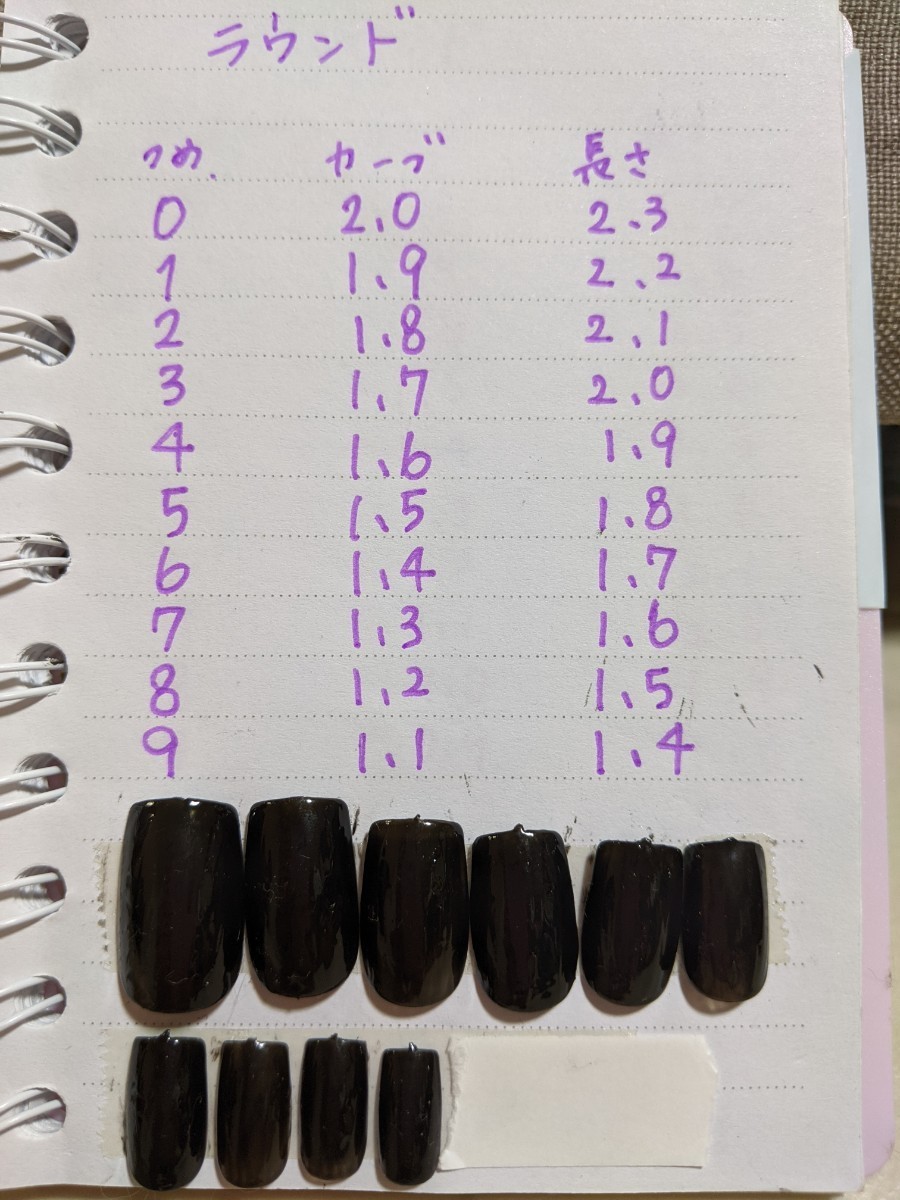 ラウンド
つめ. カーブ 長さ
0 2.0 2.3
1 1.9 2.2
2 1.8 2.1
3 1.7 2.0
4 1.6 1.9
5 1.5 1.8
6 1.4 1.7
7 1.3 1.6
8 1.2 1.5
9 1.1 1.4